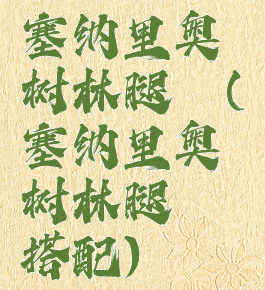 塞纳里奥
树林腿（
塞纳里奥
树林腿
搭配）